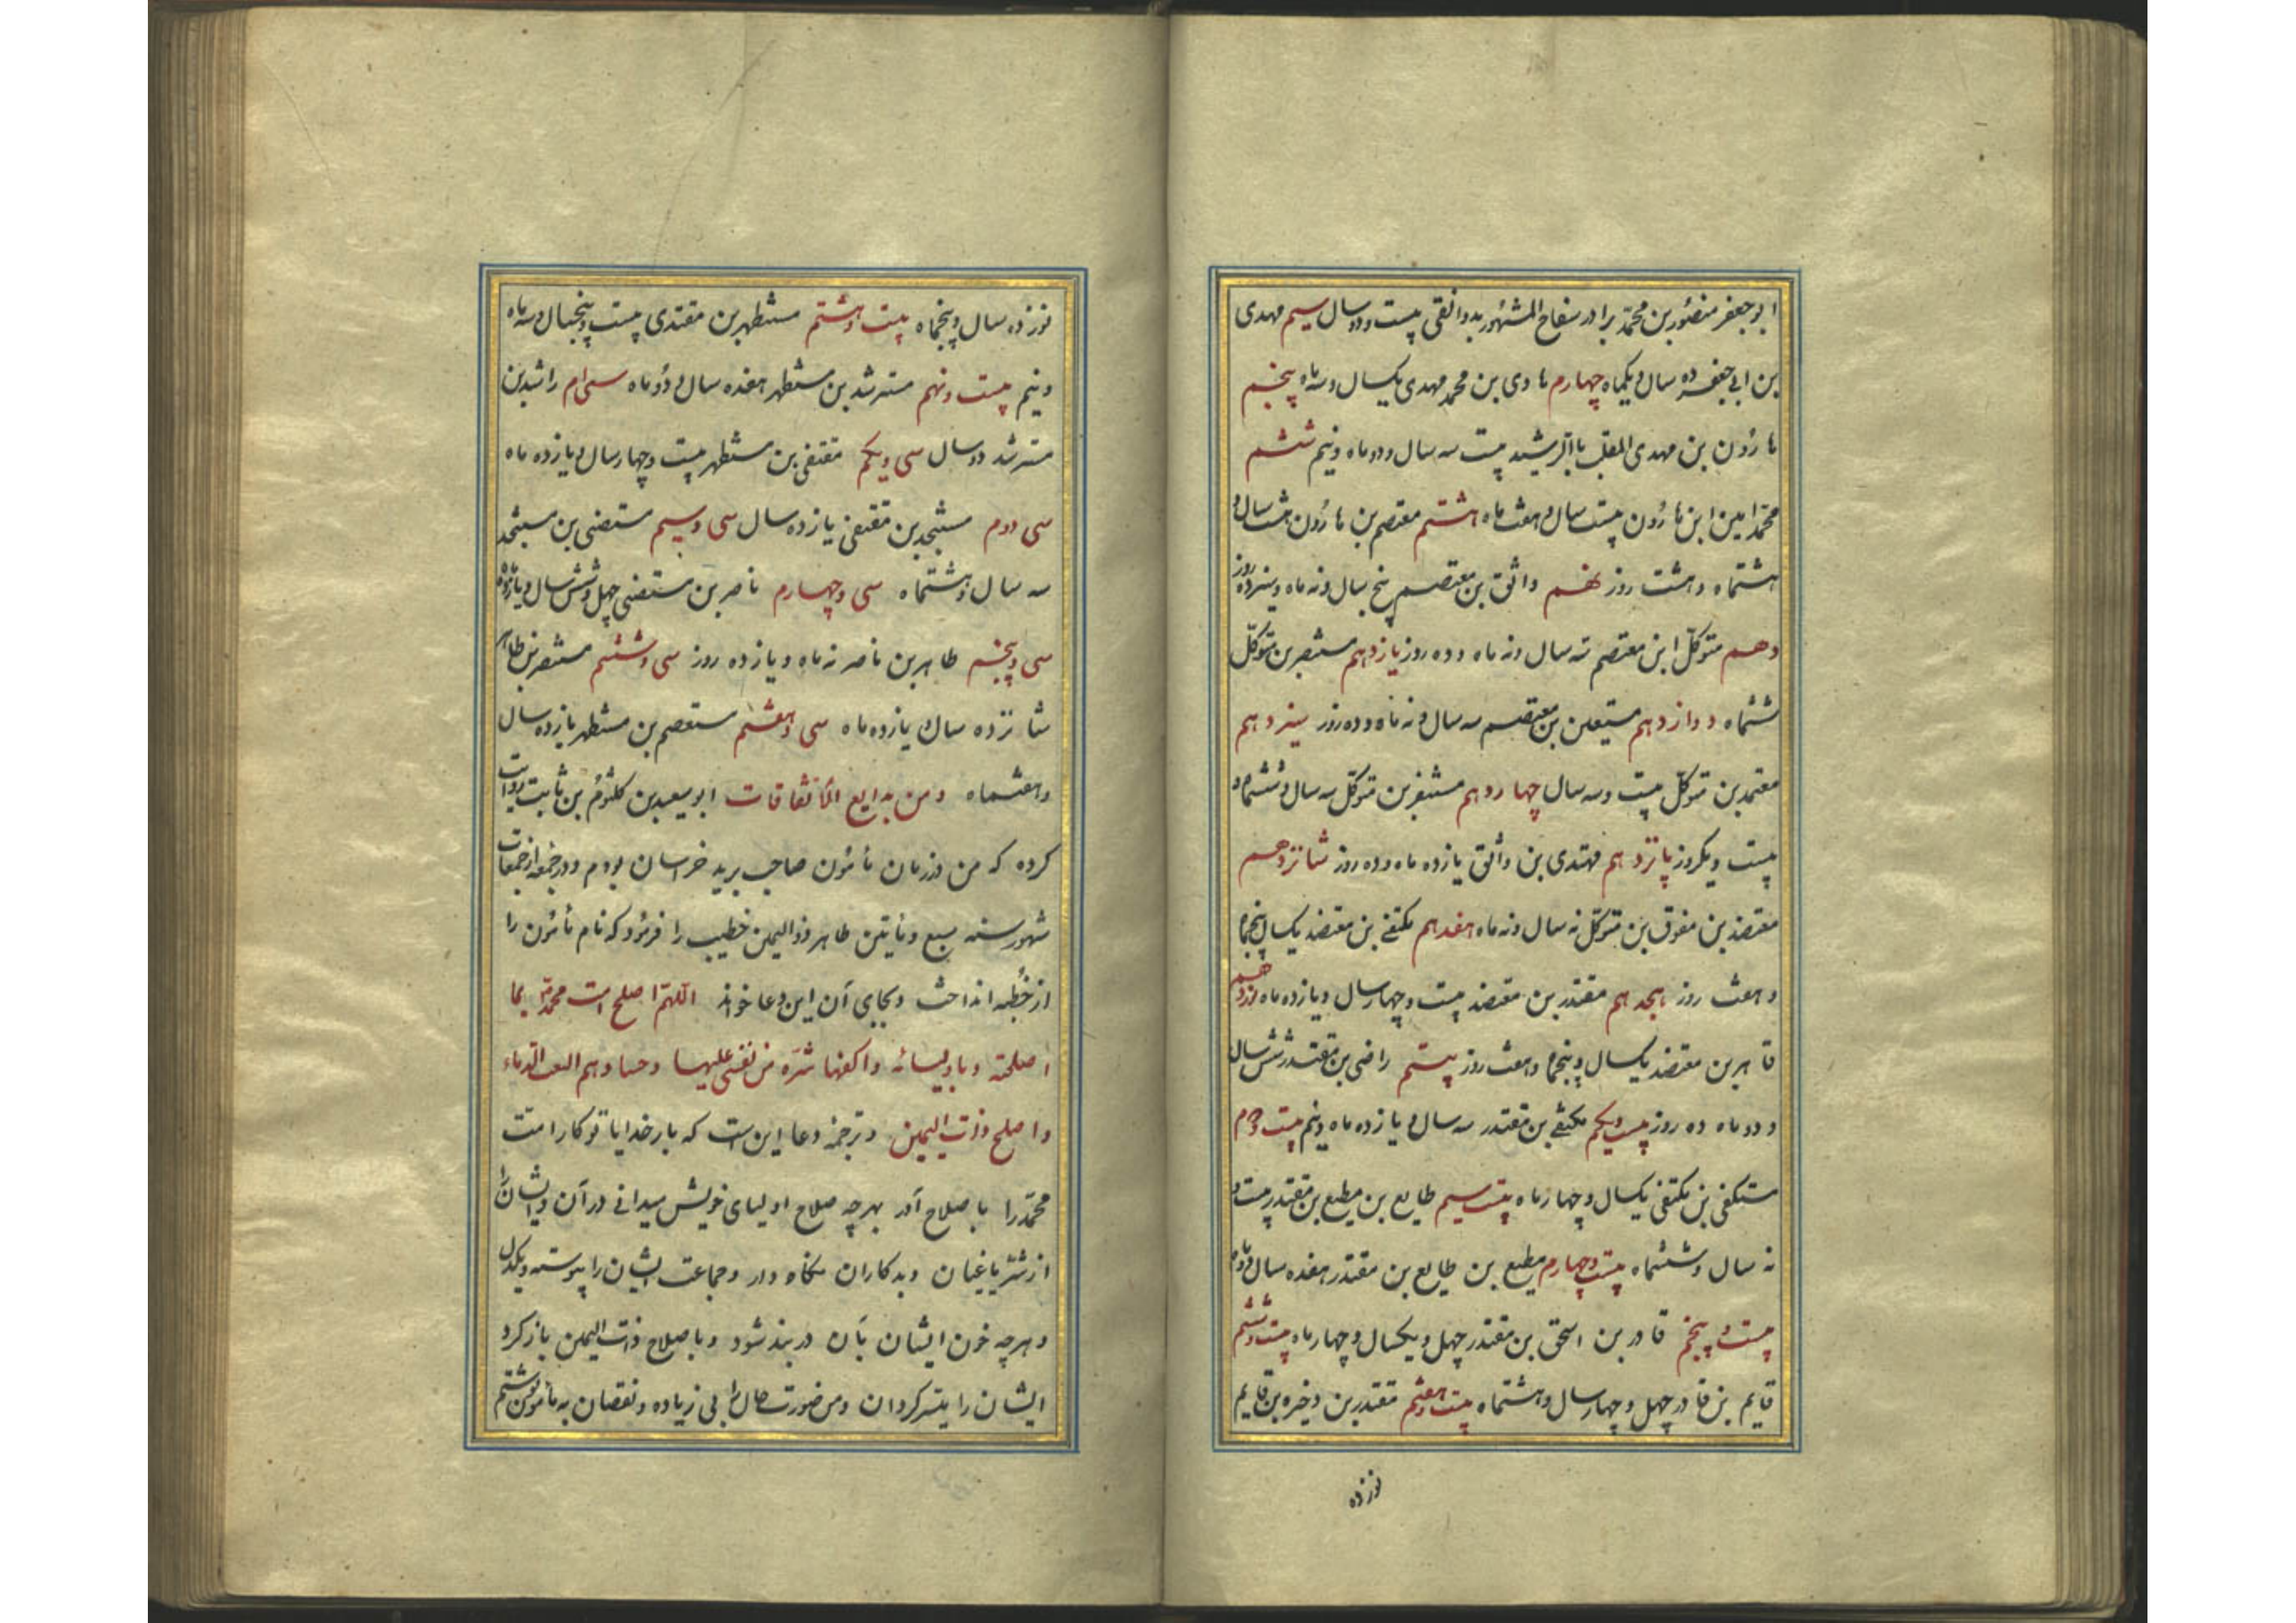 ابوجعفر منصور بن محمّد برادر سفاح المشهور بدوانقی بیست و دو سال سیم مهدی
بن ابی جعفر ده سال و یکماه چهارم هادی بن محمد مهدی یکسال و سه ماه پنجم
هارون بن مهدی الملقب باالرشید بیست سه سال و دو ماه و نیم ششم
محمّد امین ابن هارون بیست سال و هفت ماه هشتم معتصم بن هارون هشت سال و
هشتماه و هشت روز نهم واثق بن معتصم پنج سال و نه ماه و سیزده روز
دهم متوکّل ابن معتصم نه سال و نه ماه و ده روز یازدهم مستنصر بن متوکّل
ششماه دوازدهم مستعین بن معتصم سه سال و نه ماه و ده روز سیزدهم
معتمد بن متوکّل بیست و سه سال چهاردهم متوکّل سه سال و ششماه و
بیست و یکروز پانزدهم مهتدی بن واثق یازده ماه و ده روز شانزدهم
معتضد بن موفق بن متوکّل نه سال و نه ماه هفدهم مکتفی بن معتضد یکسال و پنجماه
و هفت روز هجدهم مقتدر بن معتضد بیست و چهار سال و یازده ماه نوزدهم
قاهر بن معتضد یکسال و پنجماه و هفت روز بیستم راضی بن مقتدر شش سال
و دو ماه ده روز بیست و یکم مکتفی بن مقتدر سه سال و یازده ماه و نیم بیست و دوم
مستکفی بن مکتفی یکسال و چهار ماه بیست سیم طایع بن مطیع بن مقتدر بیست و
نه سال و ششماه بیست و چهارم مطیع بن طایع بن مقتدر هفده سال و
بیست و پنجم قادر بن اسحق بن مقتدر چهل و یکسال و چهار ماه بیست و ششم
قایم بن قادر چهل و چهار سال و هشتماه بیست و هفتم مقتدر بن ذخیره بن قایم
نوزده
نوزده سال و پنجماه بیست و هشتم مستظهر بن مقتدی بیست و پنجسال و سه ماه
و نیم بیست و نهم مسترشد بن مستظهر هفده سال و دو ماه سی ام راشد بن
مسترشد دو سال سی و یکم مقتفی بن مستظهر بیست و چهار سال و یازده ماه
سی دوم مستنجد بن مقتفی یازده سال سی و سیم مستضی بن مستنجد
سه سال و هشتماه سی و چهارم ناصر بن مستضی چهل و شش سال و یازده ماه
سی و پنجم طاهر بن ناصر نه ماه و یازده روز سی و ششم مستنصر بن طاهر
شانزده سال یازده ماه سی و هفتم مستعصم بن مستظهر یازده سال
و هفتماه ومن بدایع الاتفاقات ابو سعید بن کلثوم بن ثابت روایت
کرده که من در زمان مأمون صاحب برید خراسان بودم و در جمعه از جمعات
شهور سنه سبع و مأتین طاهر ذوالیمین خطیب را فرمود که نام مأمون را
از خطبه انداخت و بجای آن این دعا خواند اللهمّ اصلح امت محمّد بما
اصلحته و باولیائه واکفها شرّ من بغی علیها و حسا و هم الدماء
واصلح ذات الیمین و ترجمه دعا این است که بار خدایا تو کار امت
محمّد را باصلاح آور بهر چه صلاح اولیای خویش میدانی در آن و ایشان را
از شرّ یاغیان و بدکاران نگاه دار و جماعت ایشان را پیوسته و یکدل
و هرچه خون ایشان بآن در بند شود و باصلاح ذات الیمین بازکرد
ایشان را میسّر گردان و من صورت حال را بی زیاده و نقصان به مأمون نوشتم